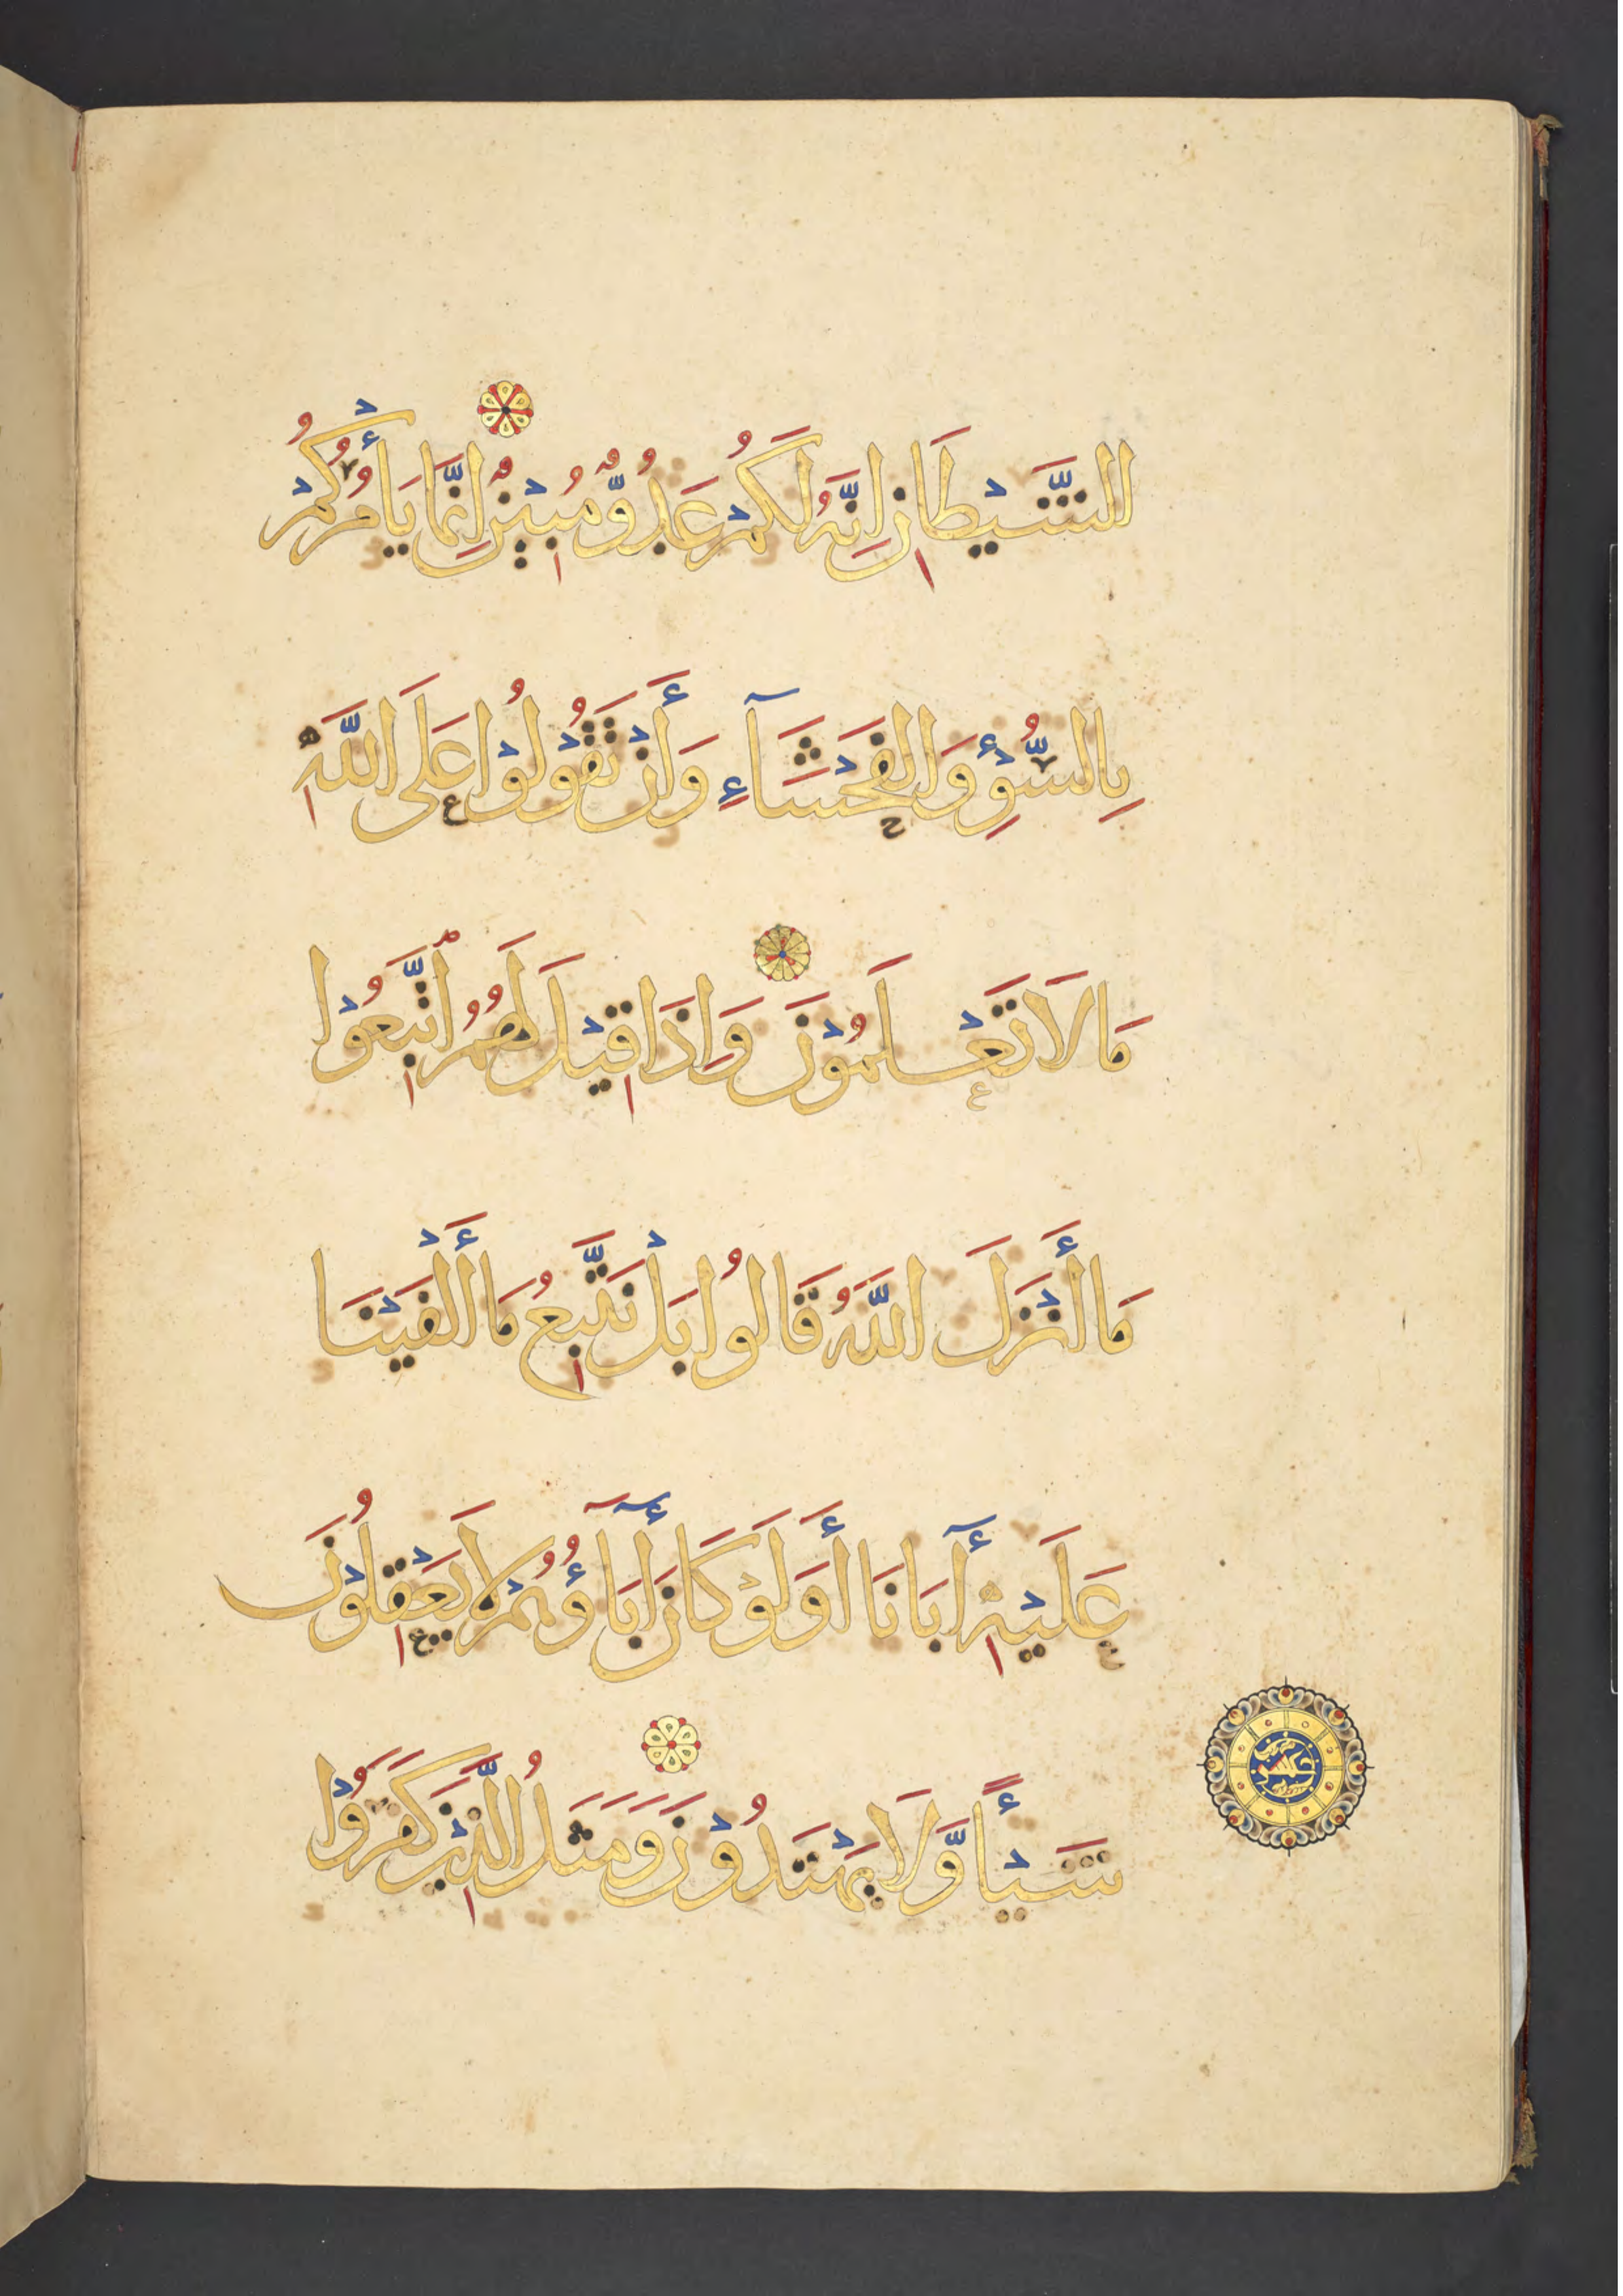 الشَّيْطَانِ اِنَّهُ لَكُمْ عَدُوٌّ مُبِيْنٌ اِنَّمَا يَأْمُرُكُمْ
بِالسُّوْءِ وَالْفَحْشَآءِ وَأَنْ تَقُوْلُوْا عَلَى اللَّهِ
مَا لَا تَعْلَمُوْنَ وَاِذَا قِيْلَ لَهُمُ اتَّبِعُوْا
مَا أَنْزَلَ اللَّهُ قَالُوا بَلْ نَتَّبِعُ مَا أَلْفَيْنَا
عَلَيْهِ أٓبَانَا أَوَلَوْ كَانَ أٓبَآؤُهُمْ لَا يَعْقِلُوْنَ
شَيْأً وَّلَا يَهْتَدُوْنَ وَمَثَلُ الَّذِيْنَ كَفَرُوْا